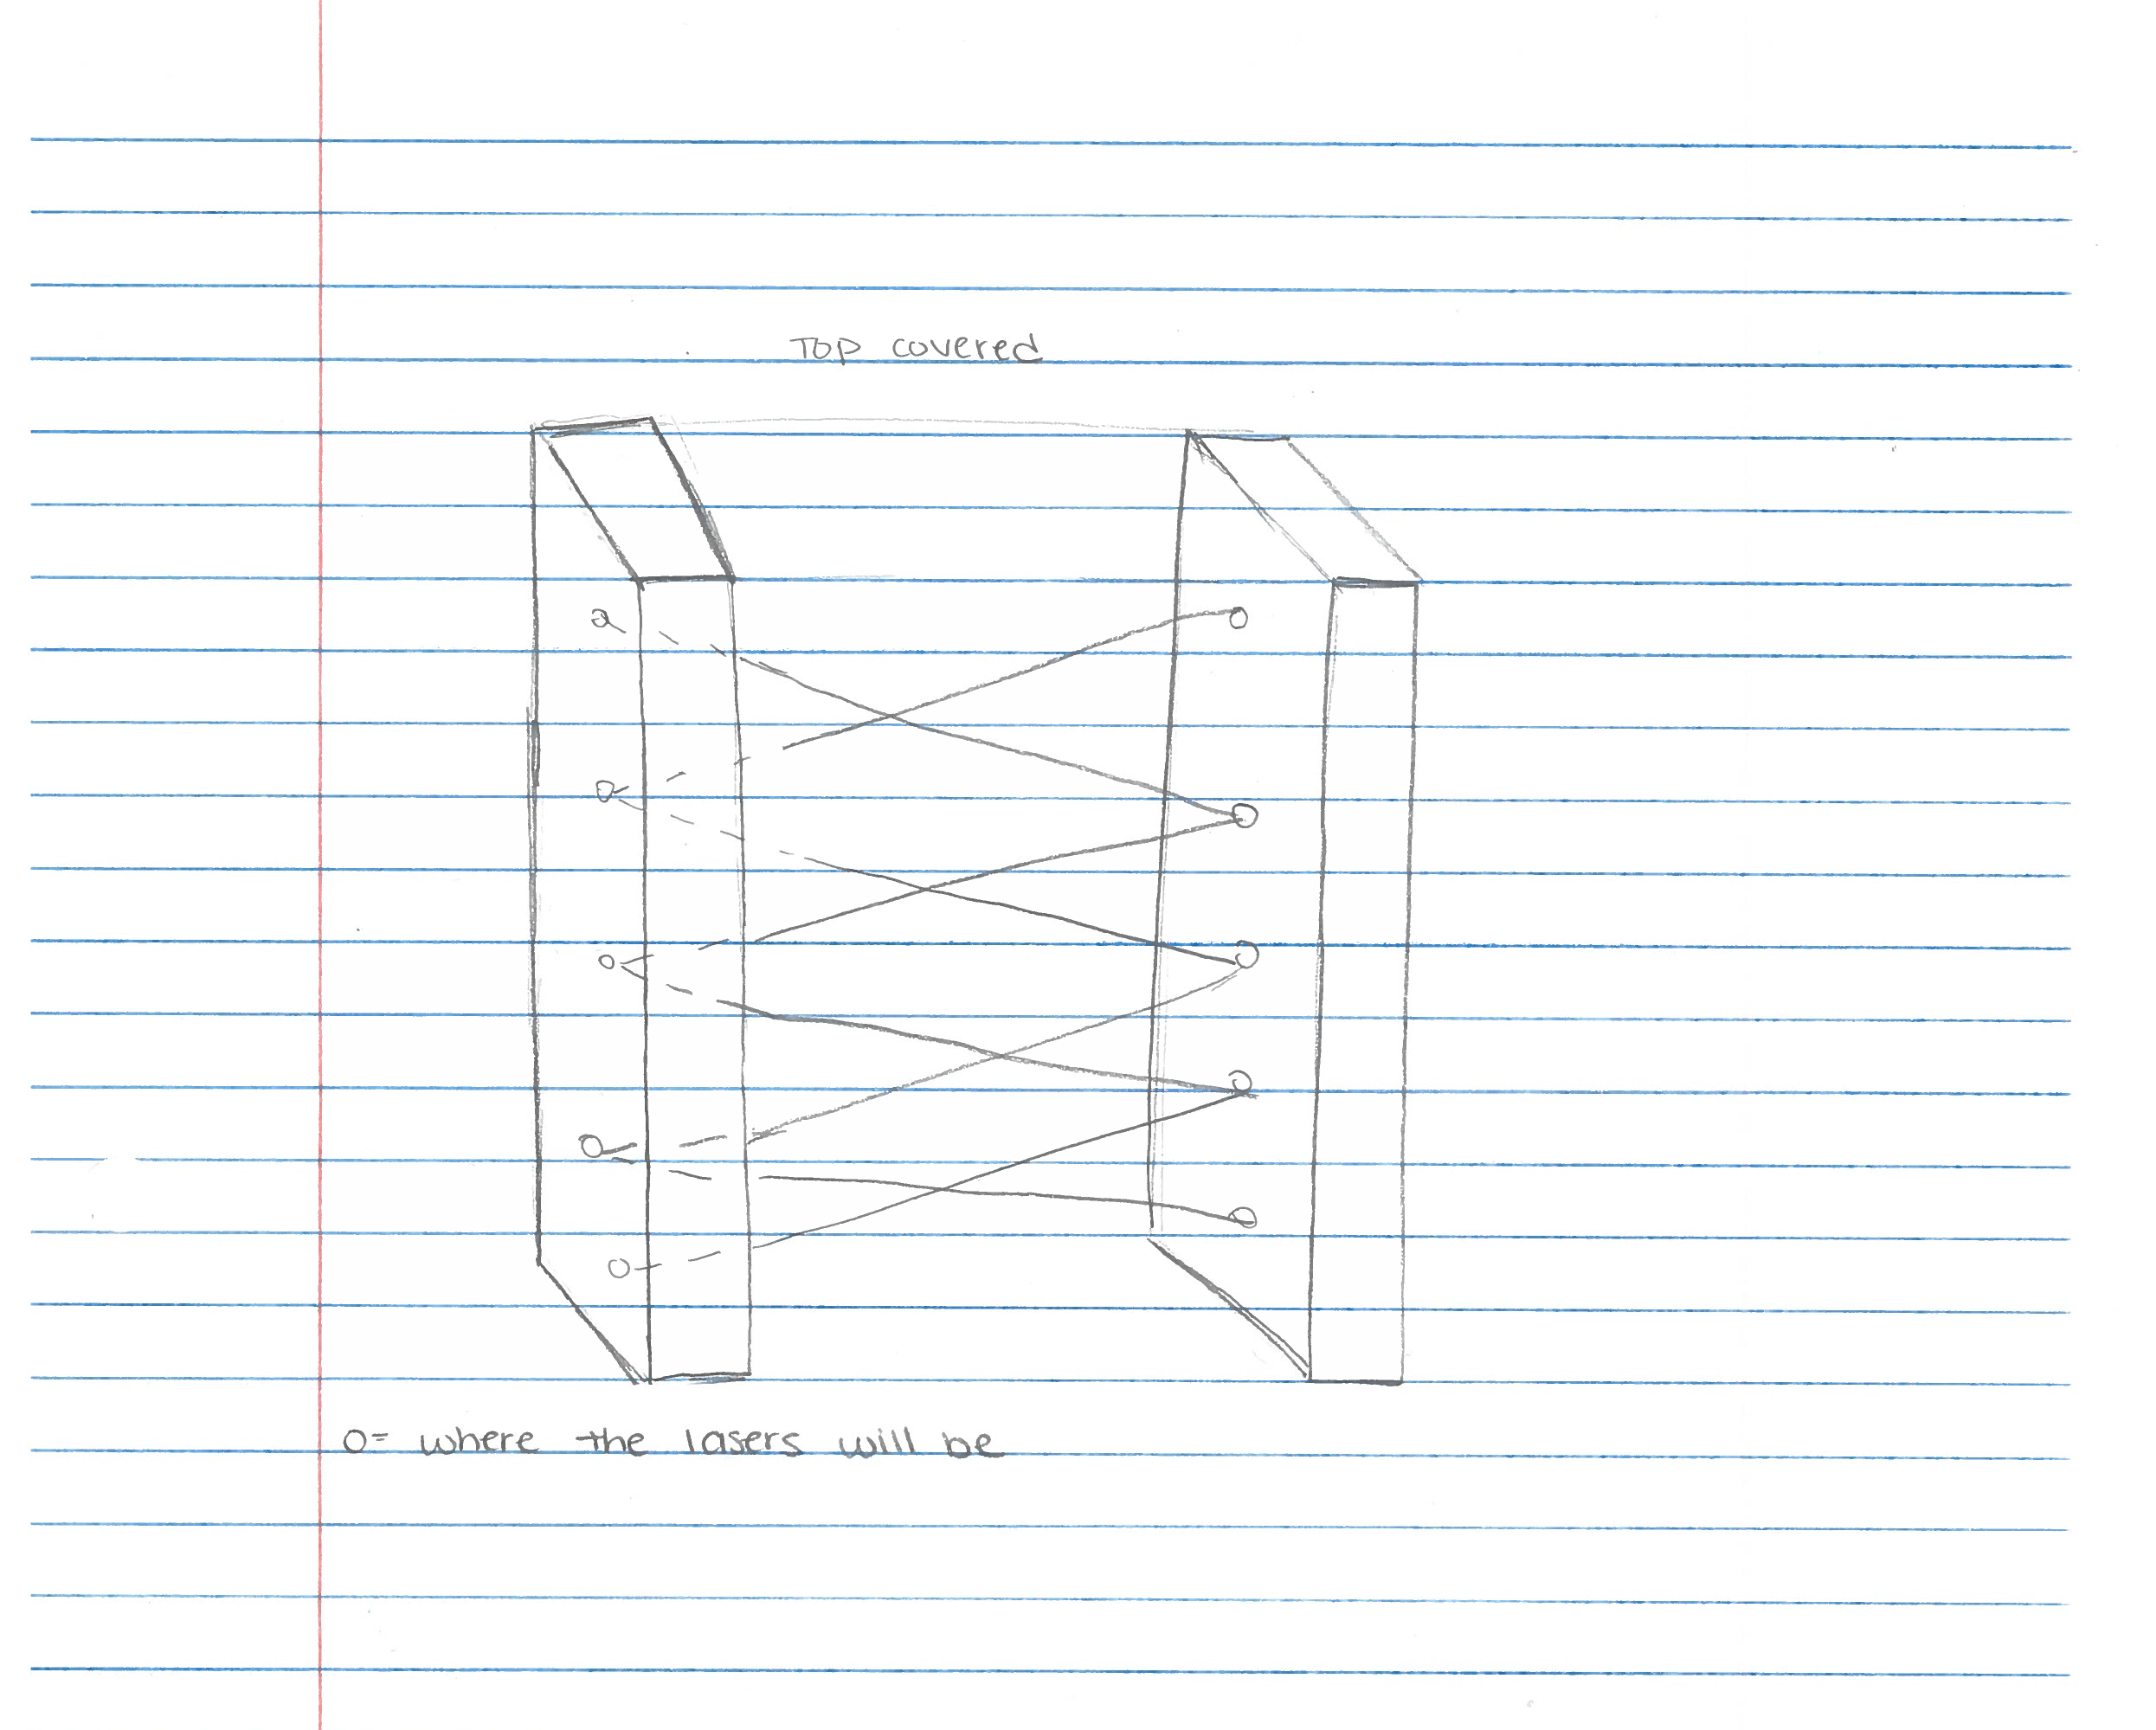 TOP covered
O= where the lasers will be